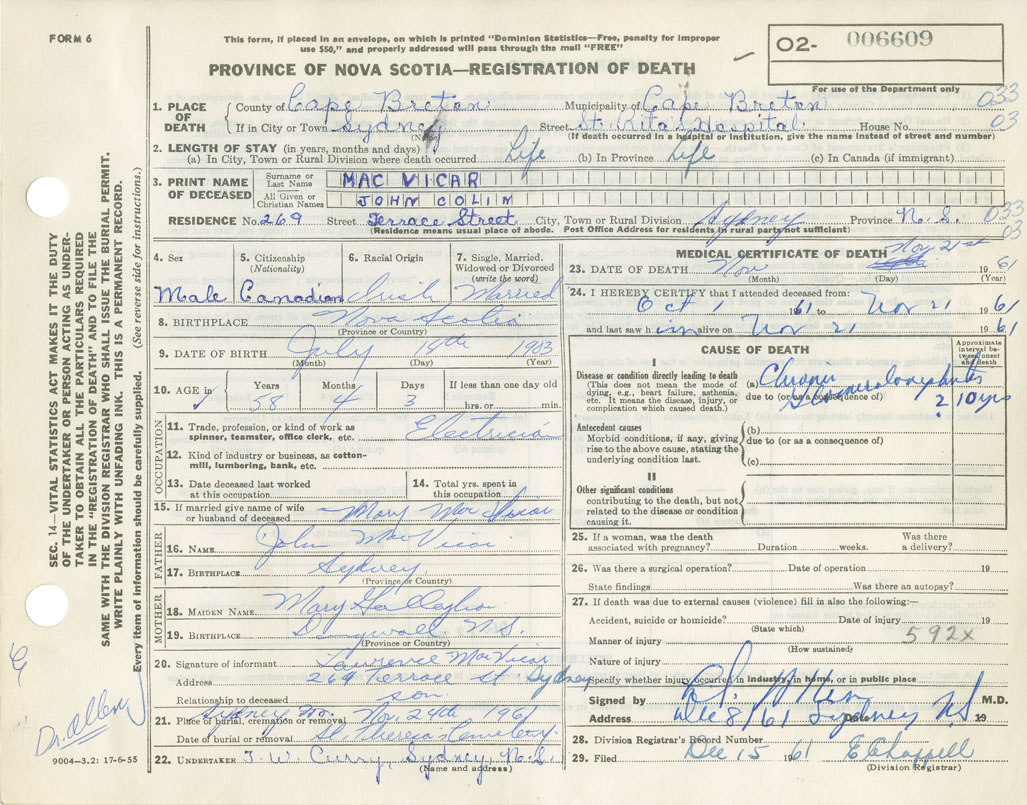 FORM 6
This form, if placed in an envelope, on which is printed "Dominion Statistics—Free, penalty for improper
use $50," and properly addressed will pass through the mail "FREE"
O2- 006609
PROVINCE OF NOVA SCOTIA—REGISTRATION OF DEATH
For use of the Department only
1. PLACE OF DEATH
County of Cape Breton Municipality of Cape Breton 033
If in City or Town Sydney Street St. Rita's Hospital House No. 03
(Name) (If death occurred in a hospital or institution, give the name instead of street and number)
2. LENGTH OF STAY (in years, months and days)
(a) In City, Town or Rural Division where death occurred Life (b) In Province Life (c) In Canada (if immigrant)
3. PRINT NAME OF DECEASED
Surname or Last Name MAC VICAR
All Given or Christian Names JOHN COLIN
RESIDENCE No. 269 Street Terrace Street City, Town or Rural Division Sydney Province N.S. 033
(Residence means usual place of abode. Post Office Address for residents in rural parts not sufficient) 03
4. Sex
5. Citizenship (Nationality)
6. Racial Origin
7. Single, Married, Widowed or Divorced (write the word)
Male Canadian Irish Married
8. BIRTHPLACE Nova Scotia
(Province or Country)
9. DATE OF BIRTH July 15th 1903
(Month) (Day) (Year)
10. AGE in Years Months Days If less than one day old
58 4 3 hrs. or min.
OCCUPATION
11. Trade, profession, or kind of work as
spinner, teamster, office clerk, etc. Electrician
12. Kind of industry or business, as cotton-
mill, lumbering, bank, etc.
13. Date deceased last worked
at this occupation
14. Total yrs. spent in
this occupation
15. If married give name of wife
or husband of deceased Mary MacVicar
FATHER
16. NAME John MacVicar
17. BIRTHPLACE Sydney
(Province or Country)
MOTHER
18. MAIDEN NAME Mary Gallagher
19. BIRTHPLACE Dingwall N.S.
(Province or Country)
20. Signature of informant Lawrence MacVicar
Address 269 Terrace St Sydney
Relationship to deceased son
21. Place of burial, cremation or removal Sydney Nov. 24th 1961
Date of burial or removal St Theresa's Cemetery
22. UNDERTAKER T. W. Curry, Sydney, N.S.
(Name and address)
MEDICAL CERTIFICATE OF DEATH Nov 21st
23. DATE OF DEATH Nov 1961
(Month) (Day) (Year)
24. I HEREBY CERTIFY that I attended deceased from:
Oct 1 1961 to Nov 21 1961
and last saw him alive on Nov 21 1961
CAUSE OF DEATH
Approximate interval between onset and death
I
Disease or condition directly leading to death
(This does not mean the mode of
dying, e.g., heart failure, asthenia,
etc. It means the disease, injury, or
complication which caused death.)
(a) Chronic Glomerulonephritis
due to (or as a consequence of) 2 10 yrs
Antecedent causes
Morbid conditions, if any, giving
rise to the above cause, stating the
underlying condition last.
(b)
due to (or as a consequence of)
(c)
II
Other significant conditions
contributing to the death, but not
related to the disease or condition
causing it.
25. If a woman, was the death
associated with pregnancy? Duration weeks. Was there
a delivery?
26. Was there a surgical operation? Date of operation 19
State findings Was there an autopsy?
27. If death was due to external causes (violence) fill in also the following:—
Accident, suicide or homicide? Date of injury 19
(State which)
Manner of injury 592x
(How sustained)
Nature of injury
Specify whether injury occurred in industry, in home, or in public place
Signed by M.D.
Address Dec 8/61 Date Sydney NS 19
28. Division Registrar's Record Number
29. Filed Dec 15 1961 E Chappell
(Division Registrar)
SEC. 14—VITAL STATISTICS ACT MAKES IT THE DUTY
OF THE UNDERTAKER OR PERSON ACTING AS UNDER-
TAKER TO OBTAIN ALL THE PARTICULARS REQUIRED
IN THE "REGISTRATION OF DEATH" AND TO FILE THE
SAME WITH THE DIVISION REGISTRAR WHO SHALL ISSUE THE BURIAL PERMIT.
WRITE PLAINLY WITH UNFADING INK. THIS IS A PERMANENT RECORD.
Every item of information should be carefully supplied. (See reverse side for instructions.)
9004-3.2: 17-6-55